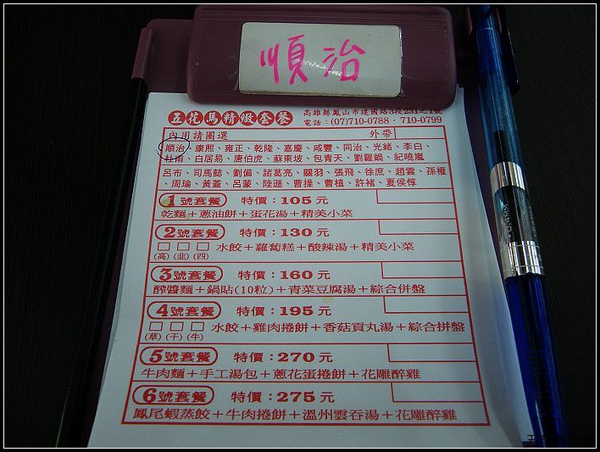 順治
五花馬精緻套餐
高雄縣鳳山市建國路3段251之1號
電話：(07)710-0788．710-0799
內用請圈選 外帶
順治、康熙、雍正、乾隆、嘉慶、咸豐、同治、光緒、李白、
杜甫、白居易、唐伯虎、蘇東坡、包青天、劉羅鍋、紀曉嵐
呂布、司馬懿、劉備、諸葛亮、關羽、張飛、徐庶、趙雲、孫權
、周瑜、黃蓋、呂蒙、陸遜、曹操、曹植、許褚、夏侯惇
1號套餐 特價：105元
乾麵＋蔥油餅＋蛋花湯＋精美小菜
2號套餐 特價：130元
水餃＋蘿蔔糕＋酸辣湯＋精美小菜
(高)(韭)(四)
3號套餐 特價：160元
酢醬麵＋鍋貼(10粒)＋青菜豆腐湯＋綜合併盤
4號套餐 特價：195元
水餃＋雞肉捲餅＋香菇貢丸湯＋綜合拼盤
(草)(干)(牛)
5號套餐 特價：270元
牛肉麵＋手工湯包＋蔥花蛋捲餅＋花雕醉雞
6號套餐 特價：275元
鳳尾蝦蒸餃＋牛肉捲餅＋溫州雲吞湯＋花雕醉雞